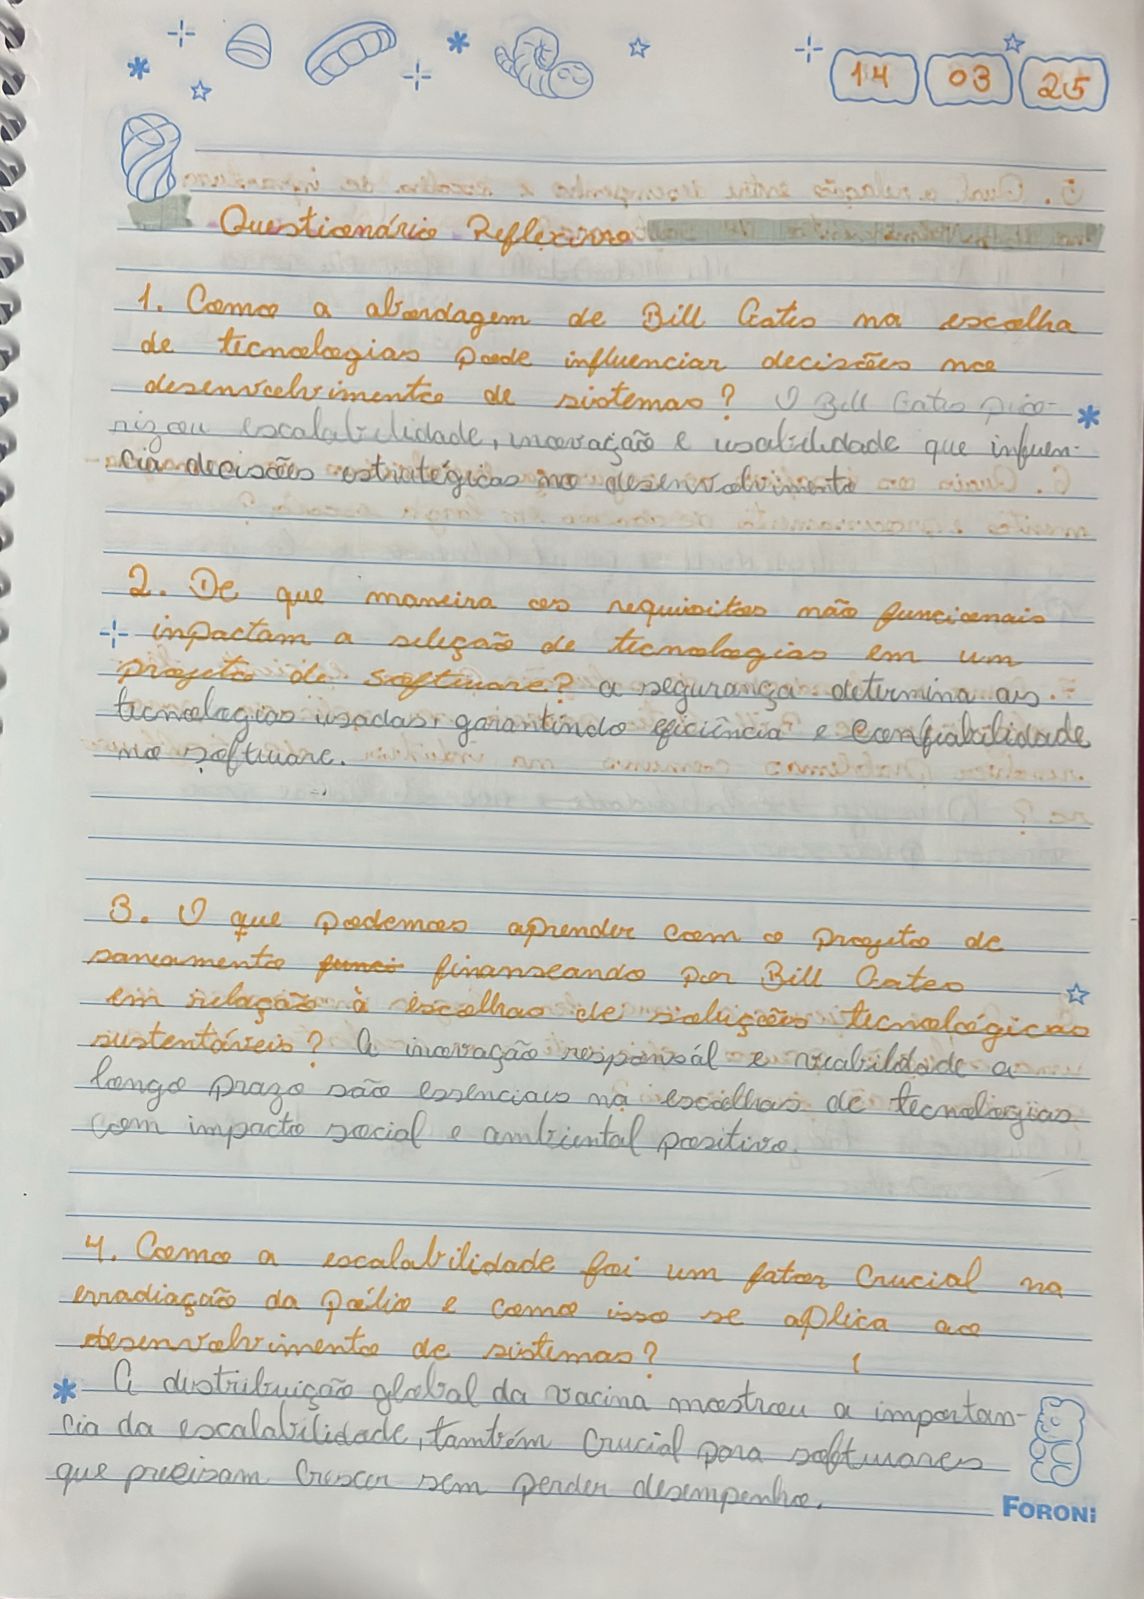 14 03 25
Questionário Reflexivo
1. Como a abordagem de Bill Gates na escolha
de tecnologias pode influenciar decisões no
desenvolvimento de sistemas? O Bill Gates prio-
rizou escalabilidade, inovação e usabilidade que influen-
cia decisões estratégicas no desenvolvimento
2. De que maneira os requisitos não funcionais
inpactam a seleção de tecnologias em um
projeto de software? a segurança determina as
tecnologias usadas, garantindo eficiência e confiabilidade
no software.
3. O que podemos aprender com o projeto de
saneamento finanseando por Bill Gates
em relação à escolhas de soluções tecnológicas
sustentáveis? A inovação responsál e viabilidade a
longo prazo são essenciais na escolhas de tecnologias
com impacto social e ambiental positivo.
4. Como a escalabilidade foi um fator crucial na
erradiação da pólio e como isso se aplica ao
desenvolvimento de sistemas?
A distribuição global da vacina mostrou a importan-
cia da escalabilidade, também crucial para softwares
que precisam crescer sem perder desempenho.
FORONI